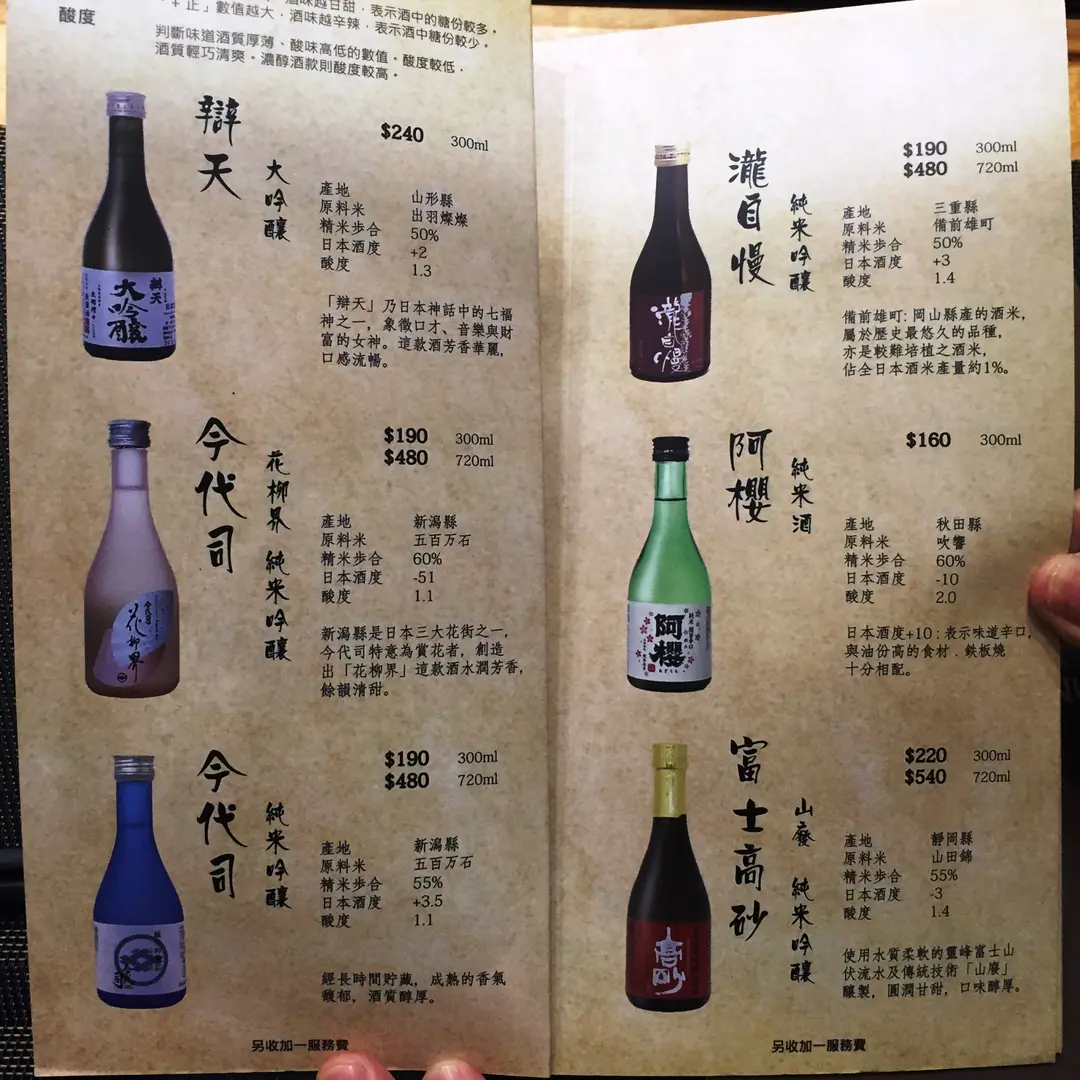 酒味越甘甜，表示酒中的糖份較多，
「+ 正」數值越大，酒味越辛辣，表示酒中糖份較少。
酸度
判斷味道酒質厚薄、酸味高低的數值。酸度較低，
酒質輕巧清爽。濃醇酒款則酸度較高。
辯天
大吟釀
$240 300ml
產地 山形縣
原料米 出羽燦燦
精米步合 50%
日本酒度 +2
酸度 1.3
「辯天」乃日本神話中的七福
神之一，象徵口才、音樂與財
富的女神。這款酒芳香華麗，
口感流暢。
辯天
大吟釀
今代司
花柳界 純米吟釀
$190 300ml
$480 720ml
產地 新潟縣
原料米 五百万石
精米步合 60%
日本酒度 -51
酸度 1.1
新潟縣是日本三大花街之一，
今代司特意為賞花者，創造
出「花柳界」這款酒水潤芳香，
餘韻清甜。
花柳界
今代司
純米吟釀
$190 300ml
$480 720ml
產地 新潟縣
原料米 五百万石
精米步合 55%
日本酒度 +3.5
酸度 1.1
經長時間貯藏，成熟的香氣
馥郁，酒質醇厚。
另收加一服務費
瀧自慢
純米吟釀
$190 300ml
$480 720ml
產地 三重縣
原料米 備前雄町
精米步合 50%
日本酒度 +3
酸度 1.4
備前雄町: 岡山縣產的酒米，
屬於歷史最悠久的品種，
亦是較難培植之酒米，
佔全日本酒米產量約1%。
瀧自慢
阿櫻
純米酒
$160 300ml
產地 秋田縣
原料米 吹響
精米步合 60%
日本酒度 -10
酸度 2.0
日本酒度+10 : 表示味道辛口，
與油份高的食材．鉄板燒
十分相配。
阿櫻
富士高砂
山廢 純米吟釀
$220 300ml
$540 720ml
產地 靜岡縣
原料米 山田錦
精米步合 55%
日本酒度 -3
酸度 1.4
使用水質柔軟的靈峰富士山
伏流水及傳統技術「山廢」
釀製，圓潤甘甜，口味醇厚。
高砂
另收加一服務費